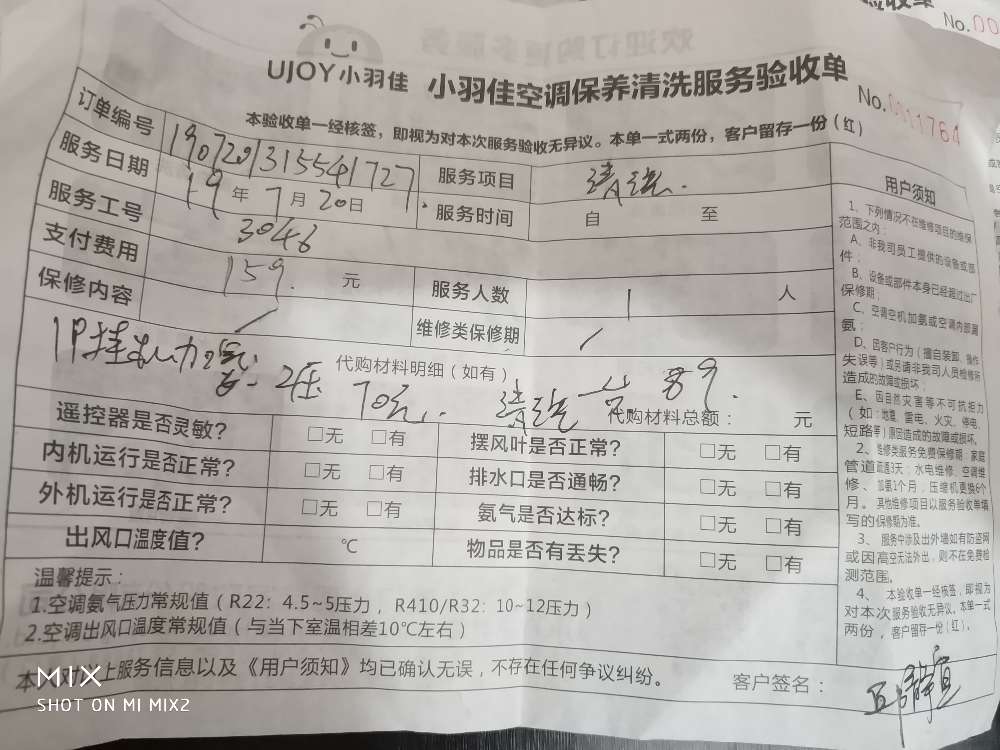 No.00
UJOY小羽佳 小羽佳空调保养清洗服务验收单
No.0011764
本验收单一经核签，即视为对本次服务验收无异议。本单一式两份，客户留存一份（红）
订单编号 1907201315541727 服务项目 清洗.
服务日期 19年7月20日 服务时间 自 至
服务工号 3046
支付费用 159. 元 服务人数 1 人
保修内容 / 维修类保修期 /
代购材料明细（如有）
1P挂机加氨 一2压 70元. 清洗一台 89.
代购材料总额： 元
遥控器是否灵敏？ □无 □有 摆风叶是否正常？ □无 □有
内机运行是否正常？ □无 □有 排水口是否通畅？ □无 □有
外机运行是否正常？ □无 □有 氨气是否达标？ □无 □有
出风口温度值？ ℃ 物品是否有丢失？ □无 □有
温馨提示：
1.空调氨气压力常规值（R22：4.5~5压力，R410/R32：10~12压力）
2.空调出风口温度常规值（与当下室温相差10℃左右）
本人对以上服务信息以及《用户须知》均已确认无误，不存在任何争议纠纷。
客户签名：
用户须知
1、下列情况不在维修项目的维保
范围之内：
A、非我司员工提供的设备或部
件；
B、设备或部件本身已经超过出厂
保修期；
C、空调空机加氨或空调内部漏
氨；
D、因客户行为（擅自装卸、操作
失误等）或另请非我司人员检修所
造成的故障或损坏；
E、因自然灾害等不可抗拒力
（如：地震、雷电、火灾、停电、
短路等）原因造成的故障或损坏。
2、维修类服务免费保修期：家庭
管道疏通3天；水电维修、空调维
修、加氨1个月，压缩机更换6个
月。其他维修项目以服务验收单填
写的保修期为准。
3、服务中涉及出外墙如有防盗网
或因高空无法外出，则不在免费检
测范围。
4、本验收单一经核签，即视为
对本次服务验收无异议。本单一式
两份，客户留存一份（红）。
MIX
SHOT ON MI MIX2